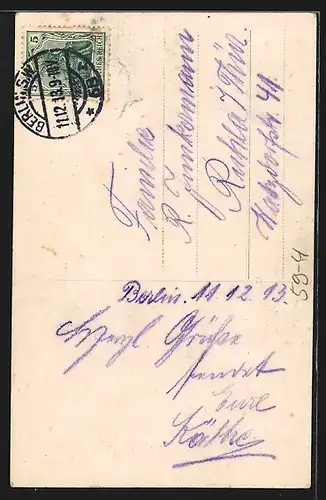 5
BERLIN SW
11.12.13.9-10V.
*
Familie
R. Junkermann
Ruhla i/Thür
Berlin. 11 12. 13.
Herzl. Grüße
sendet
Eure
Käthe
59-4